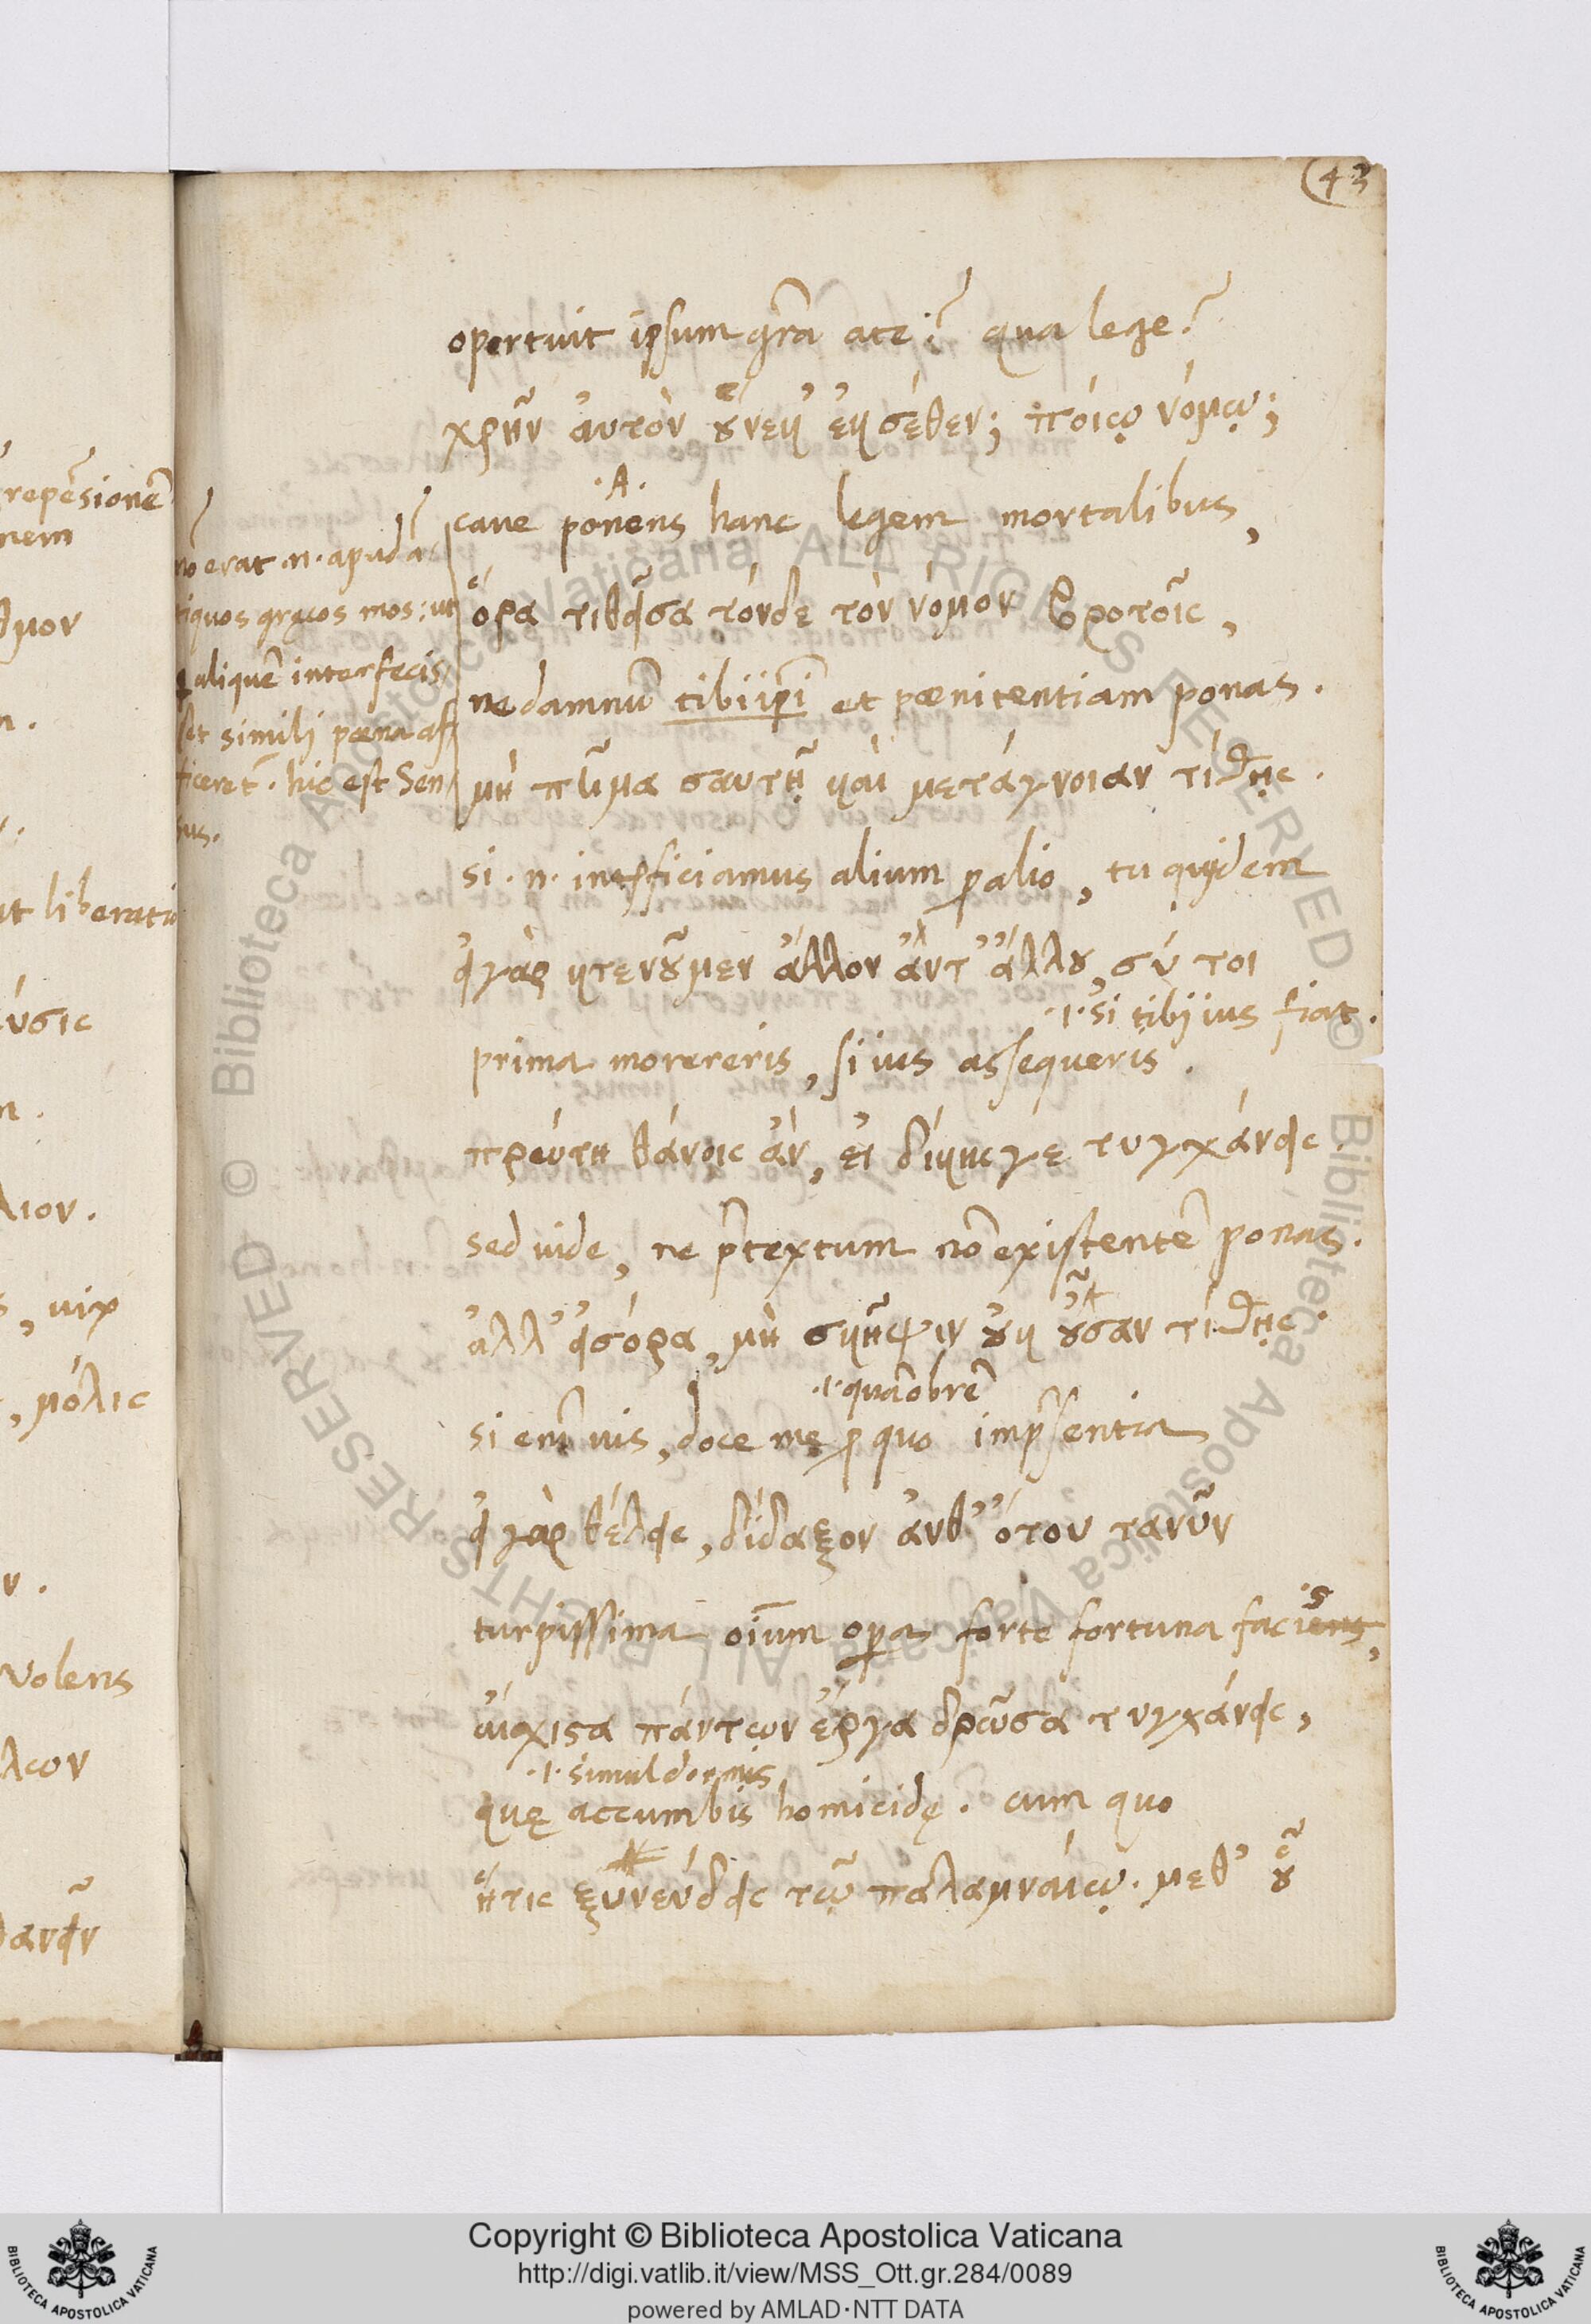 43
oportuit ipsum gr̃a a te? qua lege?
χρῆν ἀυτὸν οὕνεκ ἐκ σέθεν; ποίῳ νόμῳ;
.A.
cave ponens hanc legem mortalibus,
ὅρα τιθεῖσα τόνδε τὸν νόμον βροτοῖς,
ne damnũ tibi ip̃i et pœnitentiam ponas.
μὴ πῆμα σαυτῇ καὶ μετάγνοιαν τίθης.
si .n. interficiamus alium p alio, tu quidem
εἰ γὰρ κτενοῦμεν ἄλλον ἀντ' ἄλλου, σύ τοι
.i. si tibi ius fiat.
prima morereris, si ius assequeris.
πρώτη θάνοις ἂν, εἰ δίκης γε τυγχάνεις.
sed vide, ne p̃textum nõ existentẽ ponas.
ἀλλ' εἰσόρα, μὴ σκῆψιν οὐκ οὖσαν τίθης.
.i. quãobrẽ
si eñi vis, doce me p quo imp̃sentia
εἰ γὰρ θέλεις, δίδαξον ἀνθ' ὅτου τανῦν
turpissima oĩum opa forte fortuna faciens,
is
αἴσχιστα πάντων ἔργα δρῶσα τυγχάνεις,
.i. simul dormis
quę accumbis homicidę. cum quo
ἥτις ξυνεύδεις τῷ παλαμναίῳ. μεθ' οὗ
nõ erat .n. apud ã
tiquos gręcos mos; ut
aliquẽ interfecis
set simili pœna af
ficeret̃. hic est sen
sus.
repẽsionẽ
nem
θμον
n.
at liberati
ύσις
n.
λιον.
s, vix
, μόλις
ν.
volens
λων
θανεῖν
Copyright © Biblioteca Apostolica Vaticana
http://digi.vatlib.it/view/MSS_Ott.gr.284/0089
powered by AMLAD·NTT DATA
BIBLIOTECA APOSTOLICA VATICANA
BIBLIOTECA APOSTOLICA VATICANA
© Biblioteca Apostolica Vaticana ALL RIGHTS RESERVED
© Biblioteca Apostolica Vaticana ALL RIGHTS RESERVED